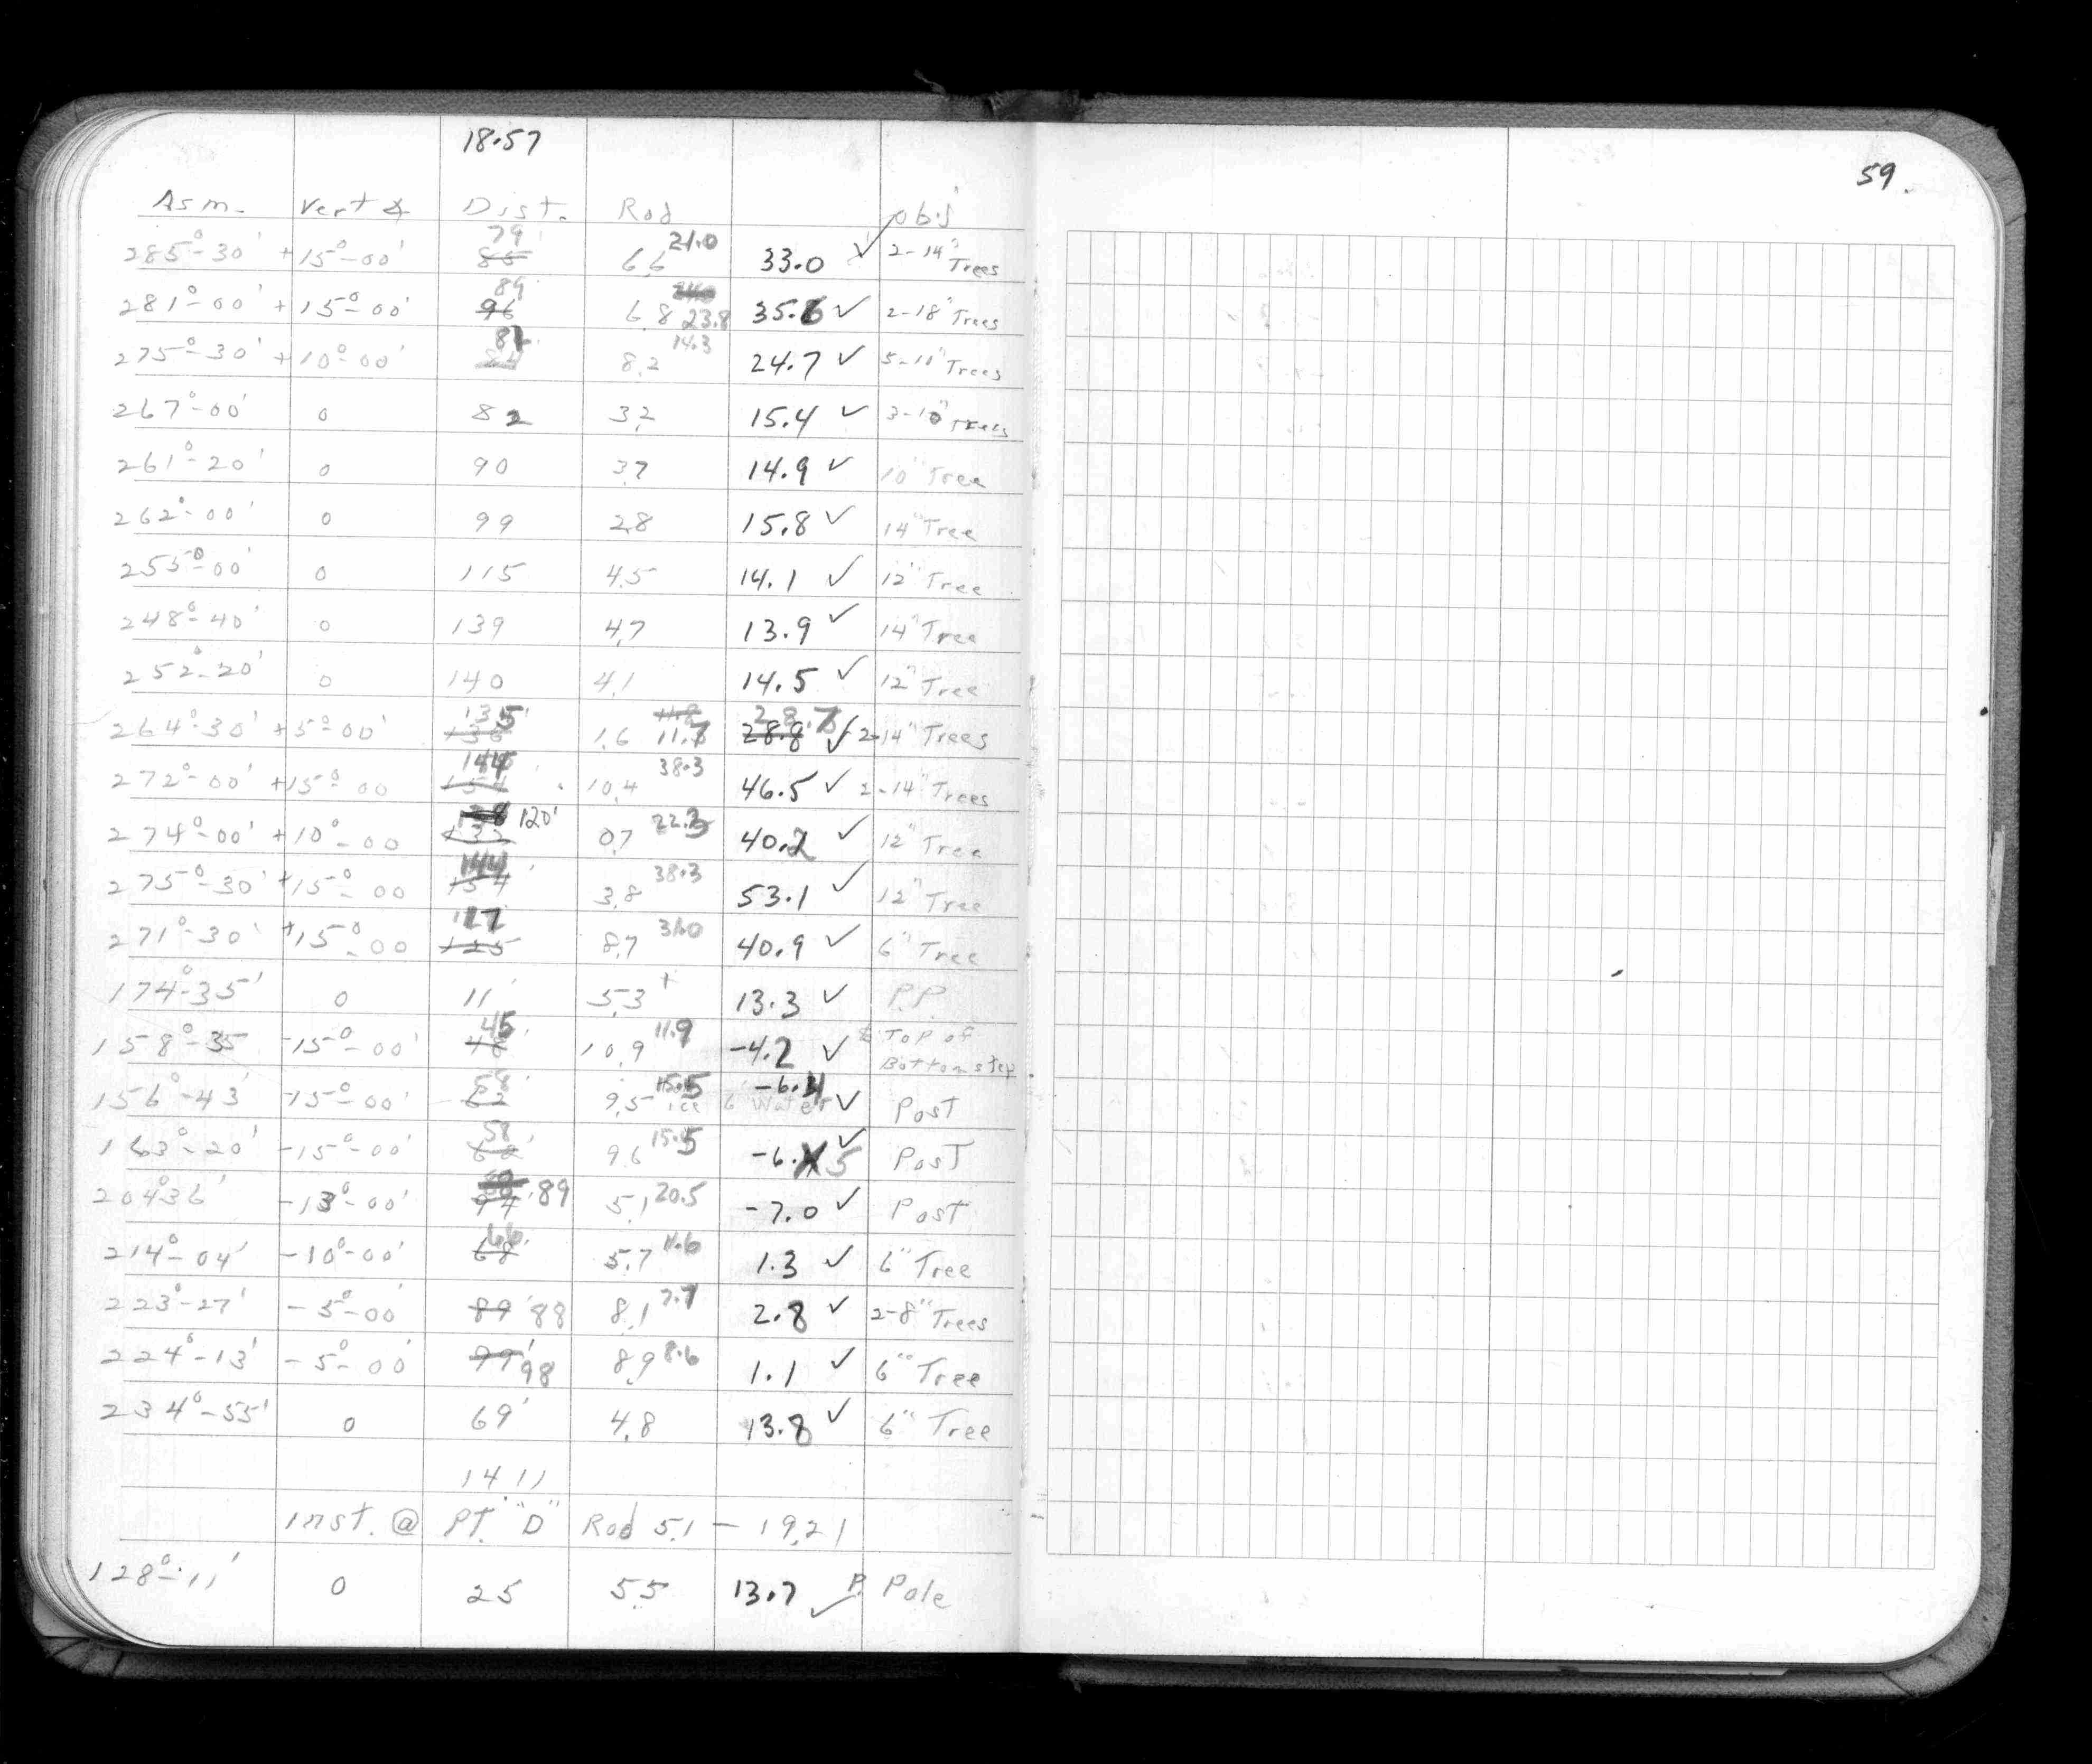 18.57
59.
Asm. Vert ∡ Dist. Rod obj
285°-30' +15°-00' 79' 6.6 21.0 33.0 ✓ 2-14" Trees
281°-00' +15°-00' 96 89' 6.8 23.8 35.6 ✓ 2-18" Trees
275°-30' +10°-00' 81 8.2 14.3 24.7 ✓ 5-11" Trees
267°-00' 0 82 3.2 15.4 ✓ 3-10" Trees
261°-20' 0 90 3.7 14.9 ✓ 10" Tree
262°-00' 0 99 2.8 15.8 ✓ 14" Tree
255°-00' 0 115 4.5 14.1 ✓ 12" Tree
248°-40' 0 139 4.7 13.9 ✓ 14" Tree
252°-20' 0 140 4.1 14.5 ✓ 12" Tree
264°-30' +5°-00' 136 135' 1.6 11.8 11.7 28.8 28.7 ✓ 2-14" Trees
272°-00' +15°-00 154 144 10.4 38.3 46.5 ✓ 2-14" Trees
274°-00' +10°-00 132 120' 0.7 22.3 40.2 ✓ 12" Tree
275°-30' +15°-00 154 144 3.8 38.3 53.1 ✓ 12" Tree
271°-30' +15°-00 125 117 8.7 31.0 40.9 ✓ 6" Tree
174°-35' 0 11' 5.3 + 13.3 ✓ P.P.
158°-35 -15°-00' 48 45' 10.9 11.9 -4.2 ✓ Top of
Bottom step
156°-43' -15°-00' 62 58' 9.5 15.5 ice Water -6.4 ✓ Post
163°-20' -15°-00' 58' 9.6 15.5 -6.5 ✓ Post
204°36' -13°-00' 89 5.1 20.5 -7.0 ✓ Post
214°-04' -10°-00' 68 66' 5.7 11.6 1.3 ✓ 6" Tree
223°-27' -5°-00' 89' 88 8.1 7.7 2.8 ✓ 2-8" Trees
224°-13' -5°-00' 99' 98 8.9 8.6 1.1 ✓ 6" Tree
234°-55' 0 69' 4.8 13.8 ✓ 6" Tree
14.11
Inst. @ PT. "D" Rod 5.1 - 19.21
128°-11' 0 25 5.5 13.7 ✓ P. Pole